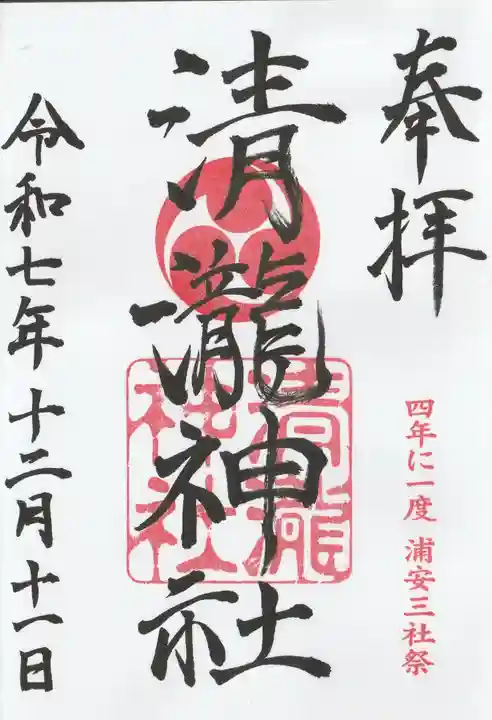 奉拝
四年に一度 浦安三社祭
清瀧神社
清瀧
神社
令和七年十二月十一日